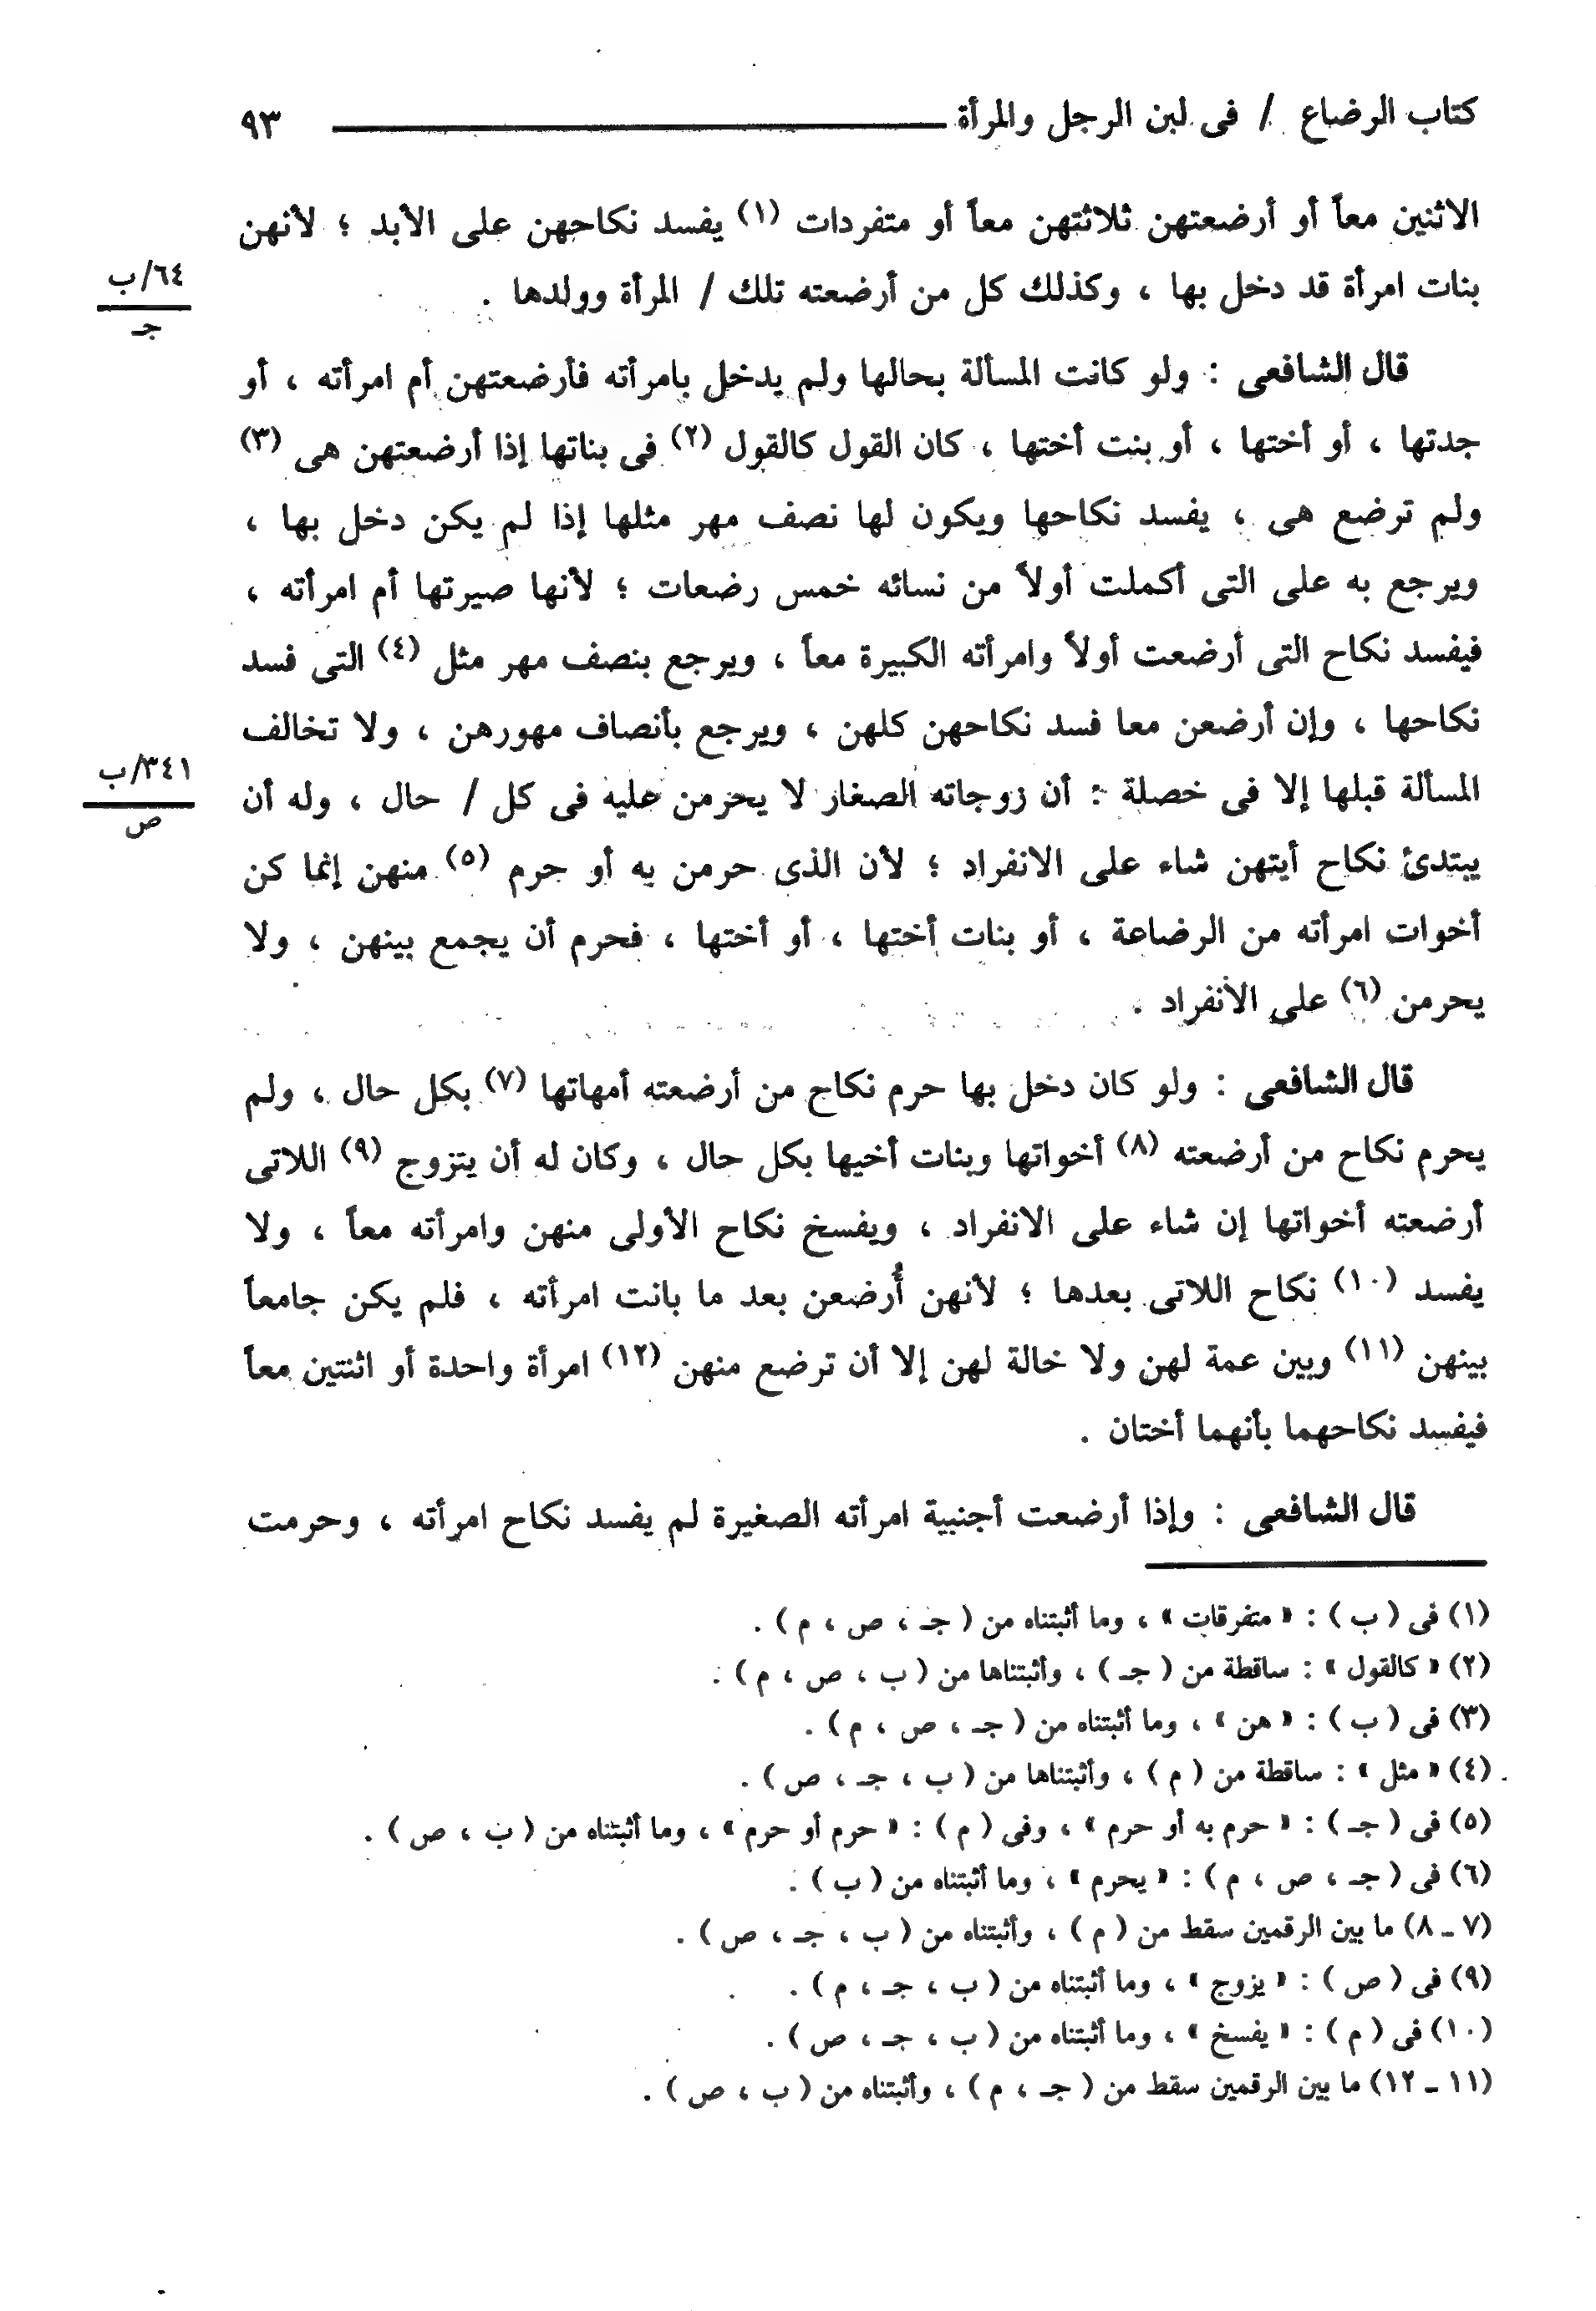 كتاب الرضاع / فى لبن الرجل والمرأة ٩٣
الاثنين معاً أو أرضعتهن ثلاثتهن معاً أو متفردات (١) يفسد نكاحهن على الأبد ؛ لأنهن
٦٤/ب
جـ
بنات امرأة قد دخل بها ، وكذلك كل من أرضعته تلك / المرأة وولدها .
قال الشافعى : ولو كانت المسألة بحالها ولم يدخل بامرأته فأرضعتهن أم امرأته ، أو
جدتها ، أو أختها ، أو بنت أختها ، كان القول كالقول (٢) فى بناتها إذا أرضعتهن هى (٣)
ولم ترضع هى ، يفسد نكاحها ويكون لها نصف مهر مثلها إذا لم يكن دخل بها ،
ويرجع به على التى أكملت أولاً من نسائه خمس رضعات ؛ لأنها صيرتها أم امرأته ،
فيفسد نكاح التى أرضعت أولاً وامرأته الكبيرة معاً ، ويرجع بنصف مهر مثل (٤) التى فسد
نكاحها ، وإن أرضعن معا فسد نكاحهن كلهن ، ويرجع بأنصاف مهورهن ، ولا تخالف
٣٤١/ب
ص
المسألة قبلها إلا فى خصلة : أن زوجاته الصغار لا يحرمن عليه فى كل / حال ، وله أن
يبتدئ نكاح أيتهن شاء على الانفراد ؛ لأن الذى حرمن به أو حرم (٥) منهن إنما كن
أخوات امرأته من الرضاعة ، أو بنات أختها ، أو أختها ، فحرم أن يجمع بينهن ، ولا
يحرمن (٦) على الانفراد .
قال الشافعى : ولو كان دخل بها حرم نكاح من أرضعته أمهاتها (٧) بكل حال ، ولم
يحرم نكاح من أرضعته (٨) أخواتها وبنات أخيها بكل حال ، وكان له أن يتزوج (٩) اللاتى
أرضعته أخواتها إن شاء على الانفراد ، ويفسخ نكاح الأولى منهن وامرأته معاً ، ولا
يفسد (١٠) نكاح اللاتى بعدها ؛ لأنهن أُرضعن بعد ما بانت امرأته ، فلم يكن جامعاً
بينهن (١١) وبين عمة لهن ولا خالة لهن إلا أن ترضع منهن (١٢) امرأة واحدة أو اثنتين معاً
فيفسد نكاحهما بأنهما أختان .
قال الشافعى : وإذا أرضعت أجنبية امرأته الصغيرة لم يفسد نكاح امرأته ، وحرمت
(١) فى ( ب ) : « متفرقات » ، وما أثبتناه من ( جـ ، ص ، م ) .
(٢) « كالقول » : ساقطة من ( جـ ) ، وأثبتناها من ( ب ، ص ، م ) .
(٣) فى ( ب ) : « هن » ، وما أثبتناه من ( جـ ، ص ، م ) .
(٤) « مثل » : ساقطة من ( م ) ، وأثبتناها من ( ب ، جـ ، ص ) .
(٥) فى ( جـ ) : « حرم به أو حرم » ، وفى ( م ) : « حرم أو حرم » ، وما أثبتناه من ( ب ، ص ) .
(٦) فى ( جـ ، ص ، م ) : « يحرم » ، وما أثبتناه من ( ب ) .
(٧ ـ ٨) ما بين الرقمين سقط من ( م ) ، وأثبتناه من ( ب ، جـ ، ص ) .
(٩) فى ( ص ) : « يزوج » ، وما أثبتناه من ( ب ، جـ ، م ) .
(١٠) فى ( م ) : « يفسخ » ، وما أثبتناه من ( ب ، جـ ، ص ) .
(١١ ـ ١٢) ما بين الرقمين سقط من ( جـ ، م ) ، وأثبتناه من ( ب ، ص ) .